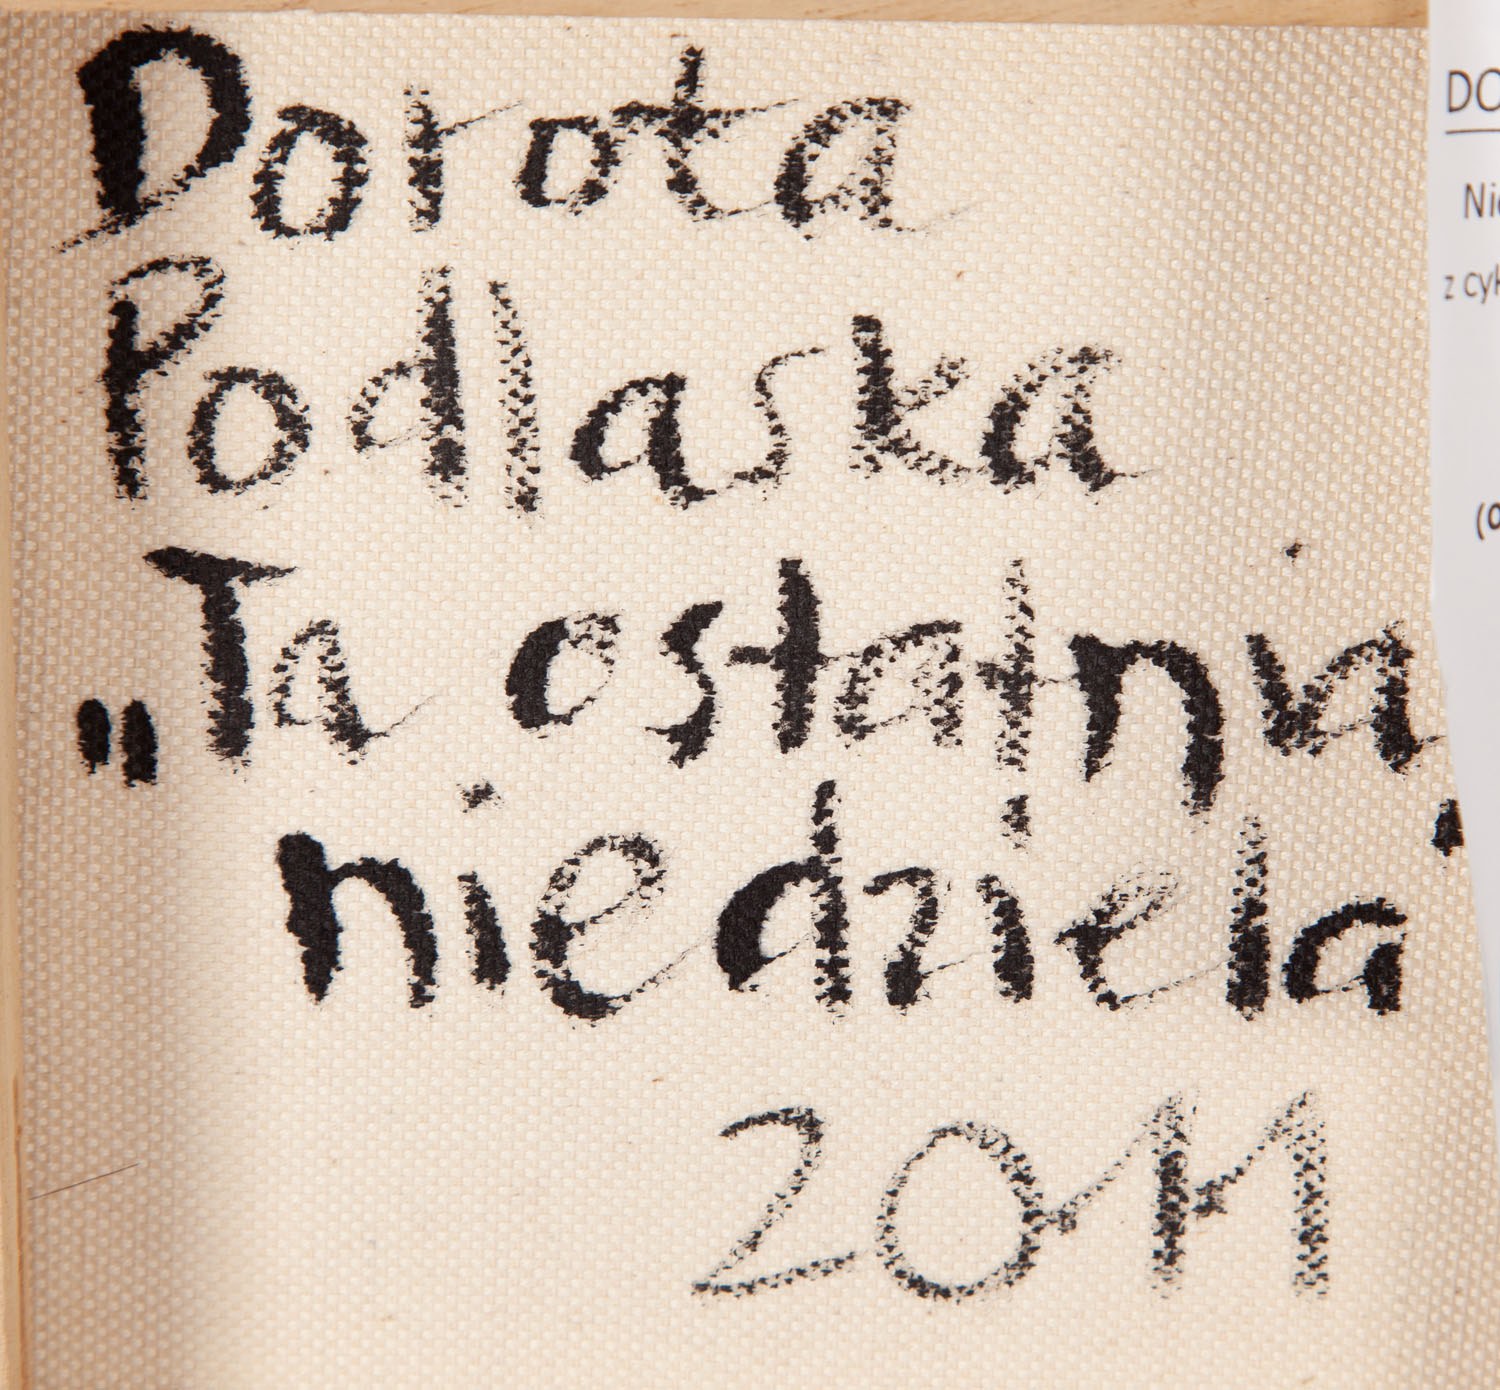 Dorota
Podlaska
„Ta ostatnia
niedziela
2011
z